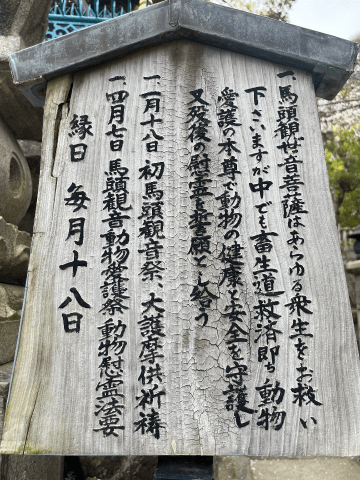 一、馬頭観世音菩薩はあらゆる衆生をお救い
下さいますが中でも畜生道救済即ち動物
愛護の本尊で動物の健康と安全を守護し
又死後の慰霊を誓願とし給う
一、二月十八日 初馬頭観音祭、大護摩供祈祷
一、四月七日 馬頭観音動物愛護祭 動物慰霊法要
縁日 毎月十八日